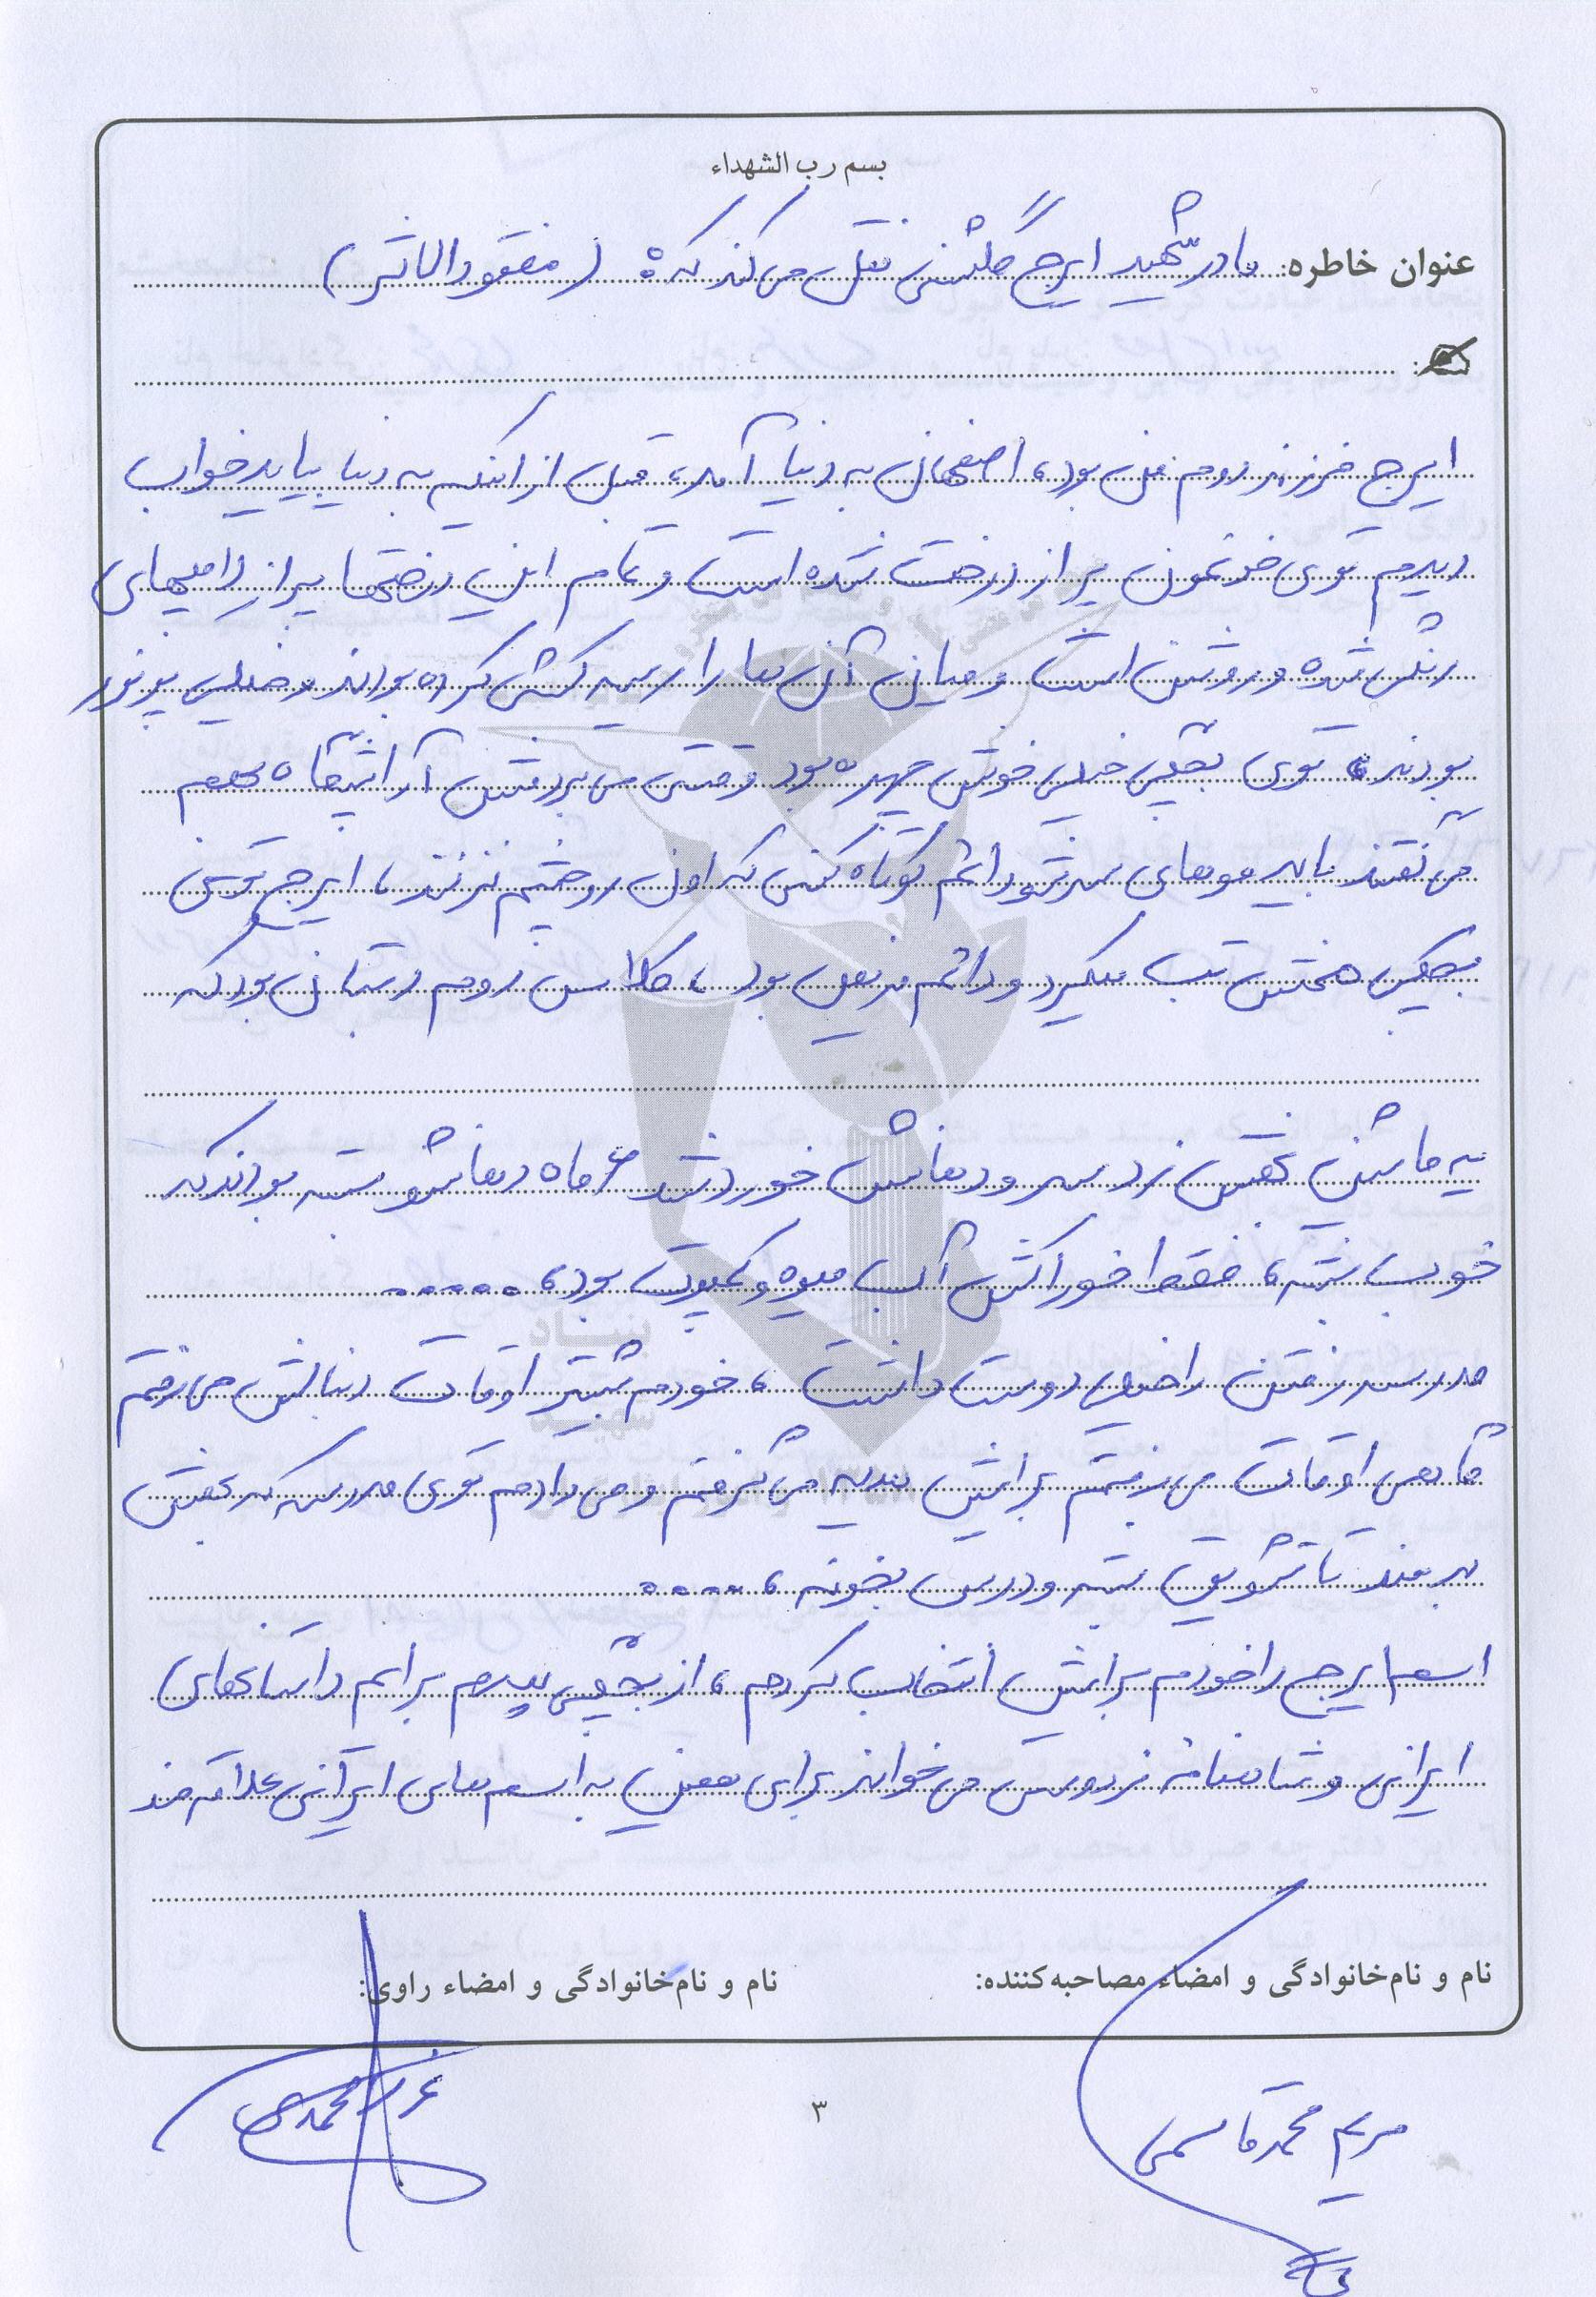 بسم رب الشهداء
عنوان خاطره: مادر شهید ایرج گلشنی نقل می کند که: (مفقودالاثر)
ایرج فرزند دوم من بود، اصفهان به دنیا آمد، قبل از اینکه به دنیا بیاید خواب
دیدم توی خونمون پر از درخت شده است و تمام این درختها پر از لامپهای
رنگی شده و روشن است و میان آن ها را ریسه کشی کرده بودند و خیلی پر نور
بودند، توی بچگی خیلی خوش چهره بود وقتی می بردمش آرایشگاه بهم
می گفتند باید موهای سرشو دائم کوتاه کنی که اون رو چشم نزنند، ایرج توی
بچگی همش تب میکرد و دائم مریض بود، کلاس دوم دبستان بود که
یه ماشین بهش زد سر و دهانش خورد شد ۶ ماه دهانشو بسته بودند که
خوب بشه، فقط خوراکش آب میوه و کمپوت بود، .....
مدرسه رفتن را خیلی دوست داشت، خودم بیشتر اوقات دنبالش می رفتم
گاهی اوقات می رفتم برایش هدیه می گرفتم و می دادم توی مدرسه که بهش
بدهند تا تشویق بشه و درس بخونه، ....
اسم ایرج را خودم برایش انتخاب کردم، از بچگی پدرم برایم داستانهای
ایرانی و شاهنامه فردوسی می خواند برای همین به اسم های ایرانی علاقه مند
نام و نام‌خانوادگی و امضاء مصاحبه‌کننده:
نام و نام‌خانوادگی و امضاء راوی:
مریم محمدقاسمی
۳
بنیاد
شهید